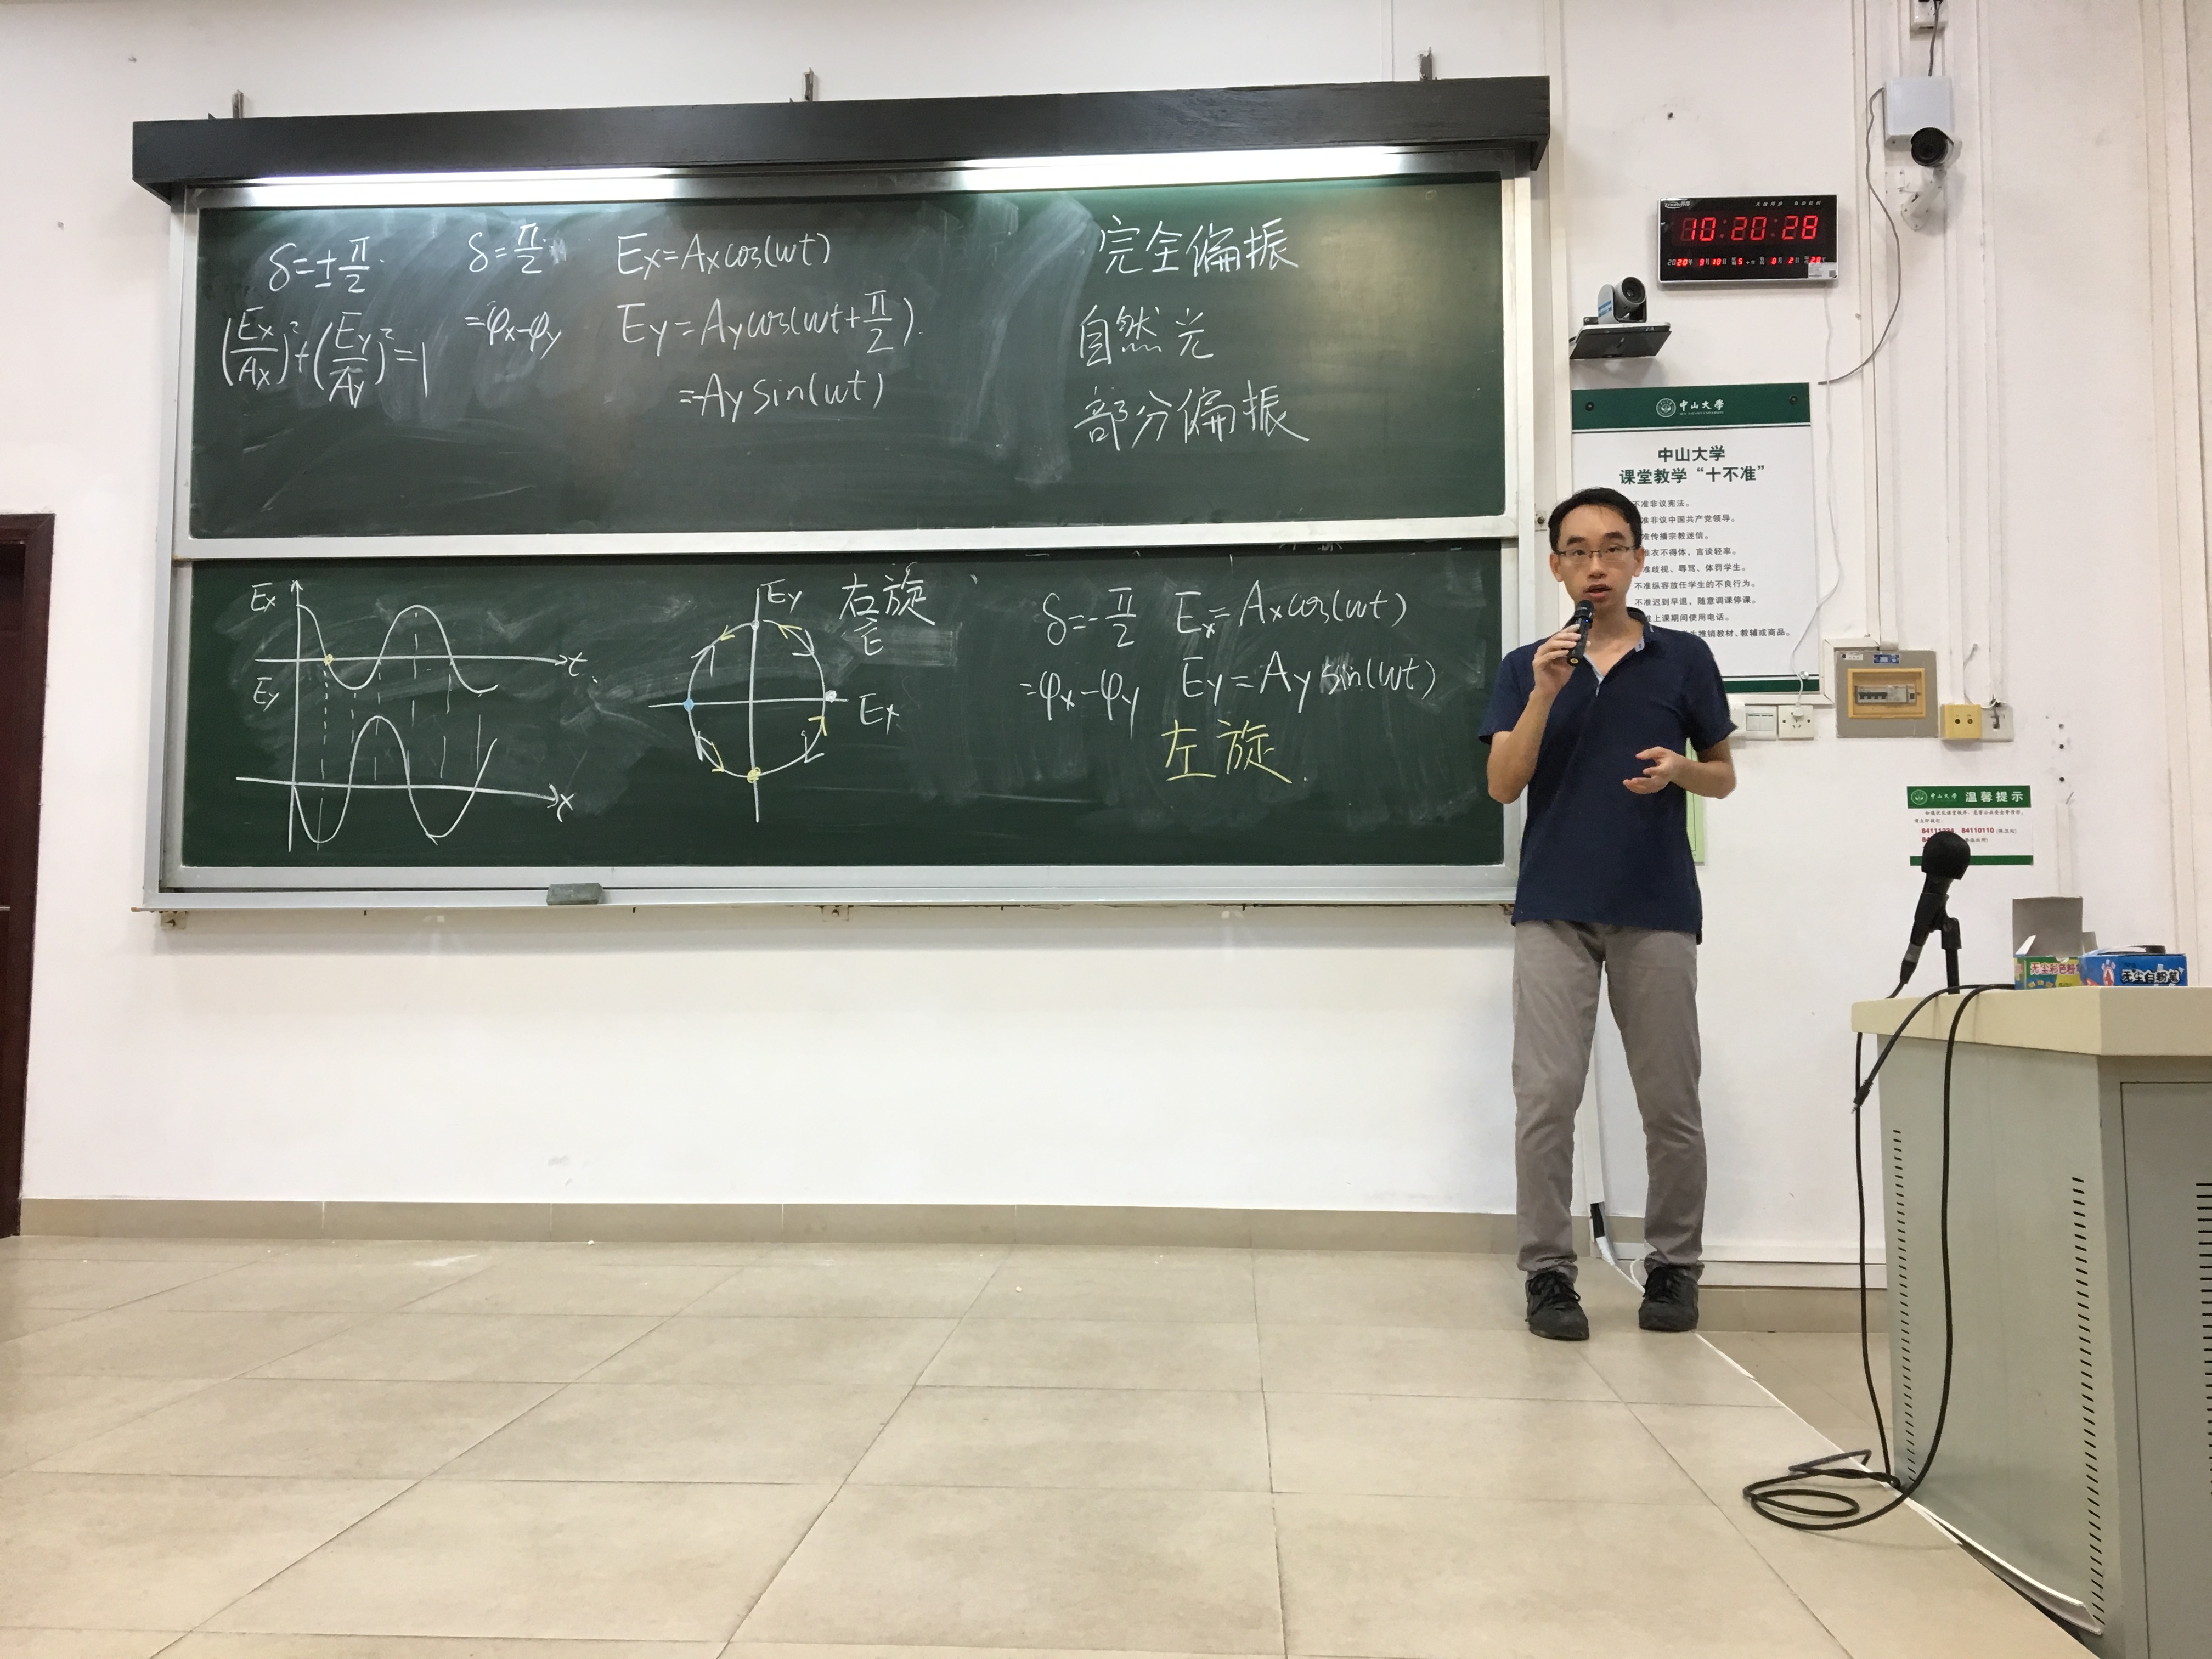 δ=±π/2
(Ex/Ax)²+(Ey/Ay)²=1
δ=π/2
=φx-φy
Ex=Axcos(wt)
Ey=Aycos(wt+π/2).
=-Ay sin(wt)
完全偏振
自然光
部分偏振
Ex
t
Ey
x
Ey
Ex
右旋
δ=-π/2
=φx-φy
Ex=Axcos(wt)
Ey=Ay sin(wt)
左旋
10:20:28
2020年 9月10日
中山大学
中山大学
课堂教学“十不准”
不准非议宪法。
准非议中国共产党领导。
准传播宗教迷信。
衣不得体，言谈轻率。
准歧视、辱骂、体罚学生。
不准纵容放任学生的不良行为。
不准迟到早退，随意调课停课。
上课期间使用电话。
推销教材、教辅或商品。
中山大学 温馨提示
84110110
无尘彩色粉
无尘白粉笔